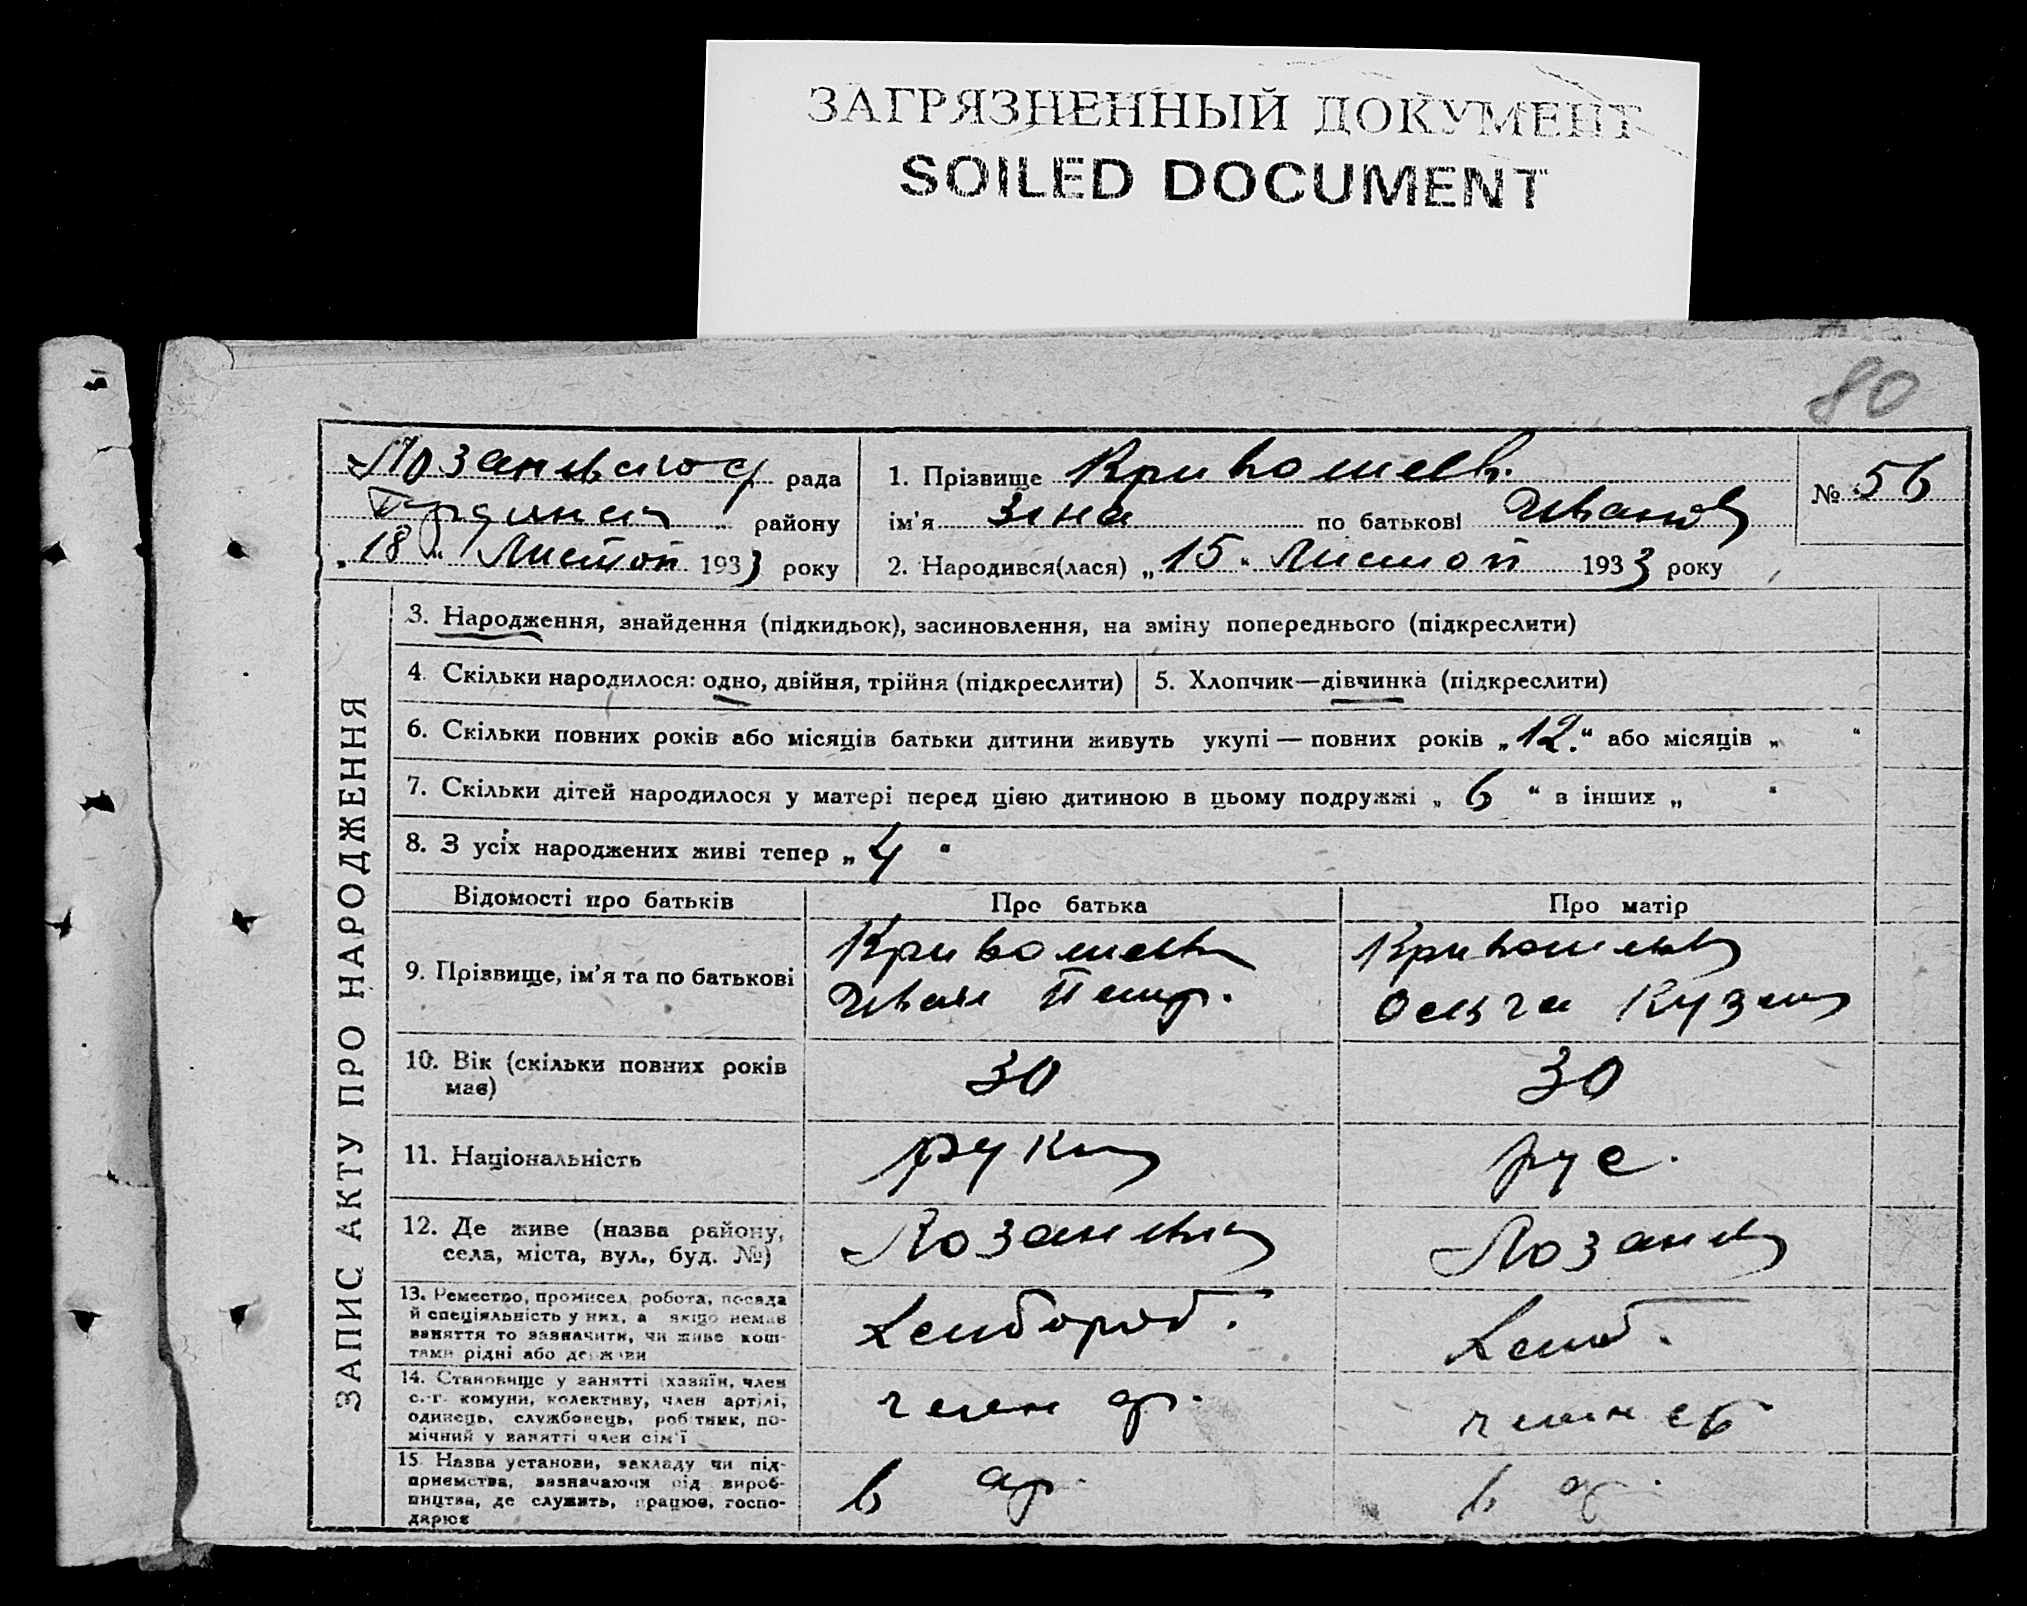 ЗАГРЯЗНЕННЫЙ ДОКУМЕНТ
SOILED DOCUMENT
80
рада
району
„18“ Листоп 1933 року
1. Прізвище Кривошеев.
ім'я Зина по батькові Иванов
2. Народився(лася) „15“ Листоп 1933 року
№ 56
ЗАПИС АКТУ ПРО НАРОДЖЕННЯ
3. Народження, знайдення (підкидьок), засиновлення, на зміну попереднього (підкреслити)
4. Скільки народилося: одно, двійня, трійня (підкреслити)
5. Хлопчик—дівчинка (підкреслити)
6. Скільки повних років або місяців батьки дитини живуть укупі — повних років „12.“ або місяців „ “
7. Скільки дітей народилося у матері перед цією дитиною в цьому подружжі „ 6 “ в інших „ “
8. З усіх народжених живі тепер „ 4 “
Відомості про батьків
Про батька
Про матір
9. Прізвище, ім'я та по батькові
Кривошеев
Иван Петр.
Кривошеев
Ольга Кузьм
10. Вік (скільки повних років
має)
30
30
11. Національність
рус.
12. Де живе (назва району,
села, міста, вул., буд. №)
13. Ремество, промисел, робота, посада
й спеціяльність у них, а якщо немає
заняття то зазначити, чи живе кош-
тами рідні або держави
Хлібороб.
Хліб.
14. Становище у занятті (хазяїн, член
с.-г. комуни, колективу, член артілі,
одинець, службовець, робітник, по-
мічний у занятті член сім'ї
член ар.
член
15. Назва установи, закладу чи під-
приємства, зазначаючи рід вироб-
ництва, де служить, працює, госпо-
дарює
в ар.
в ар.